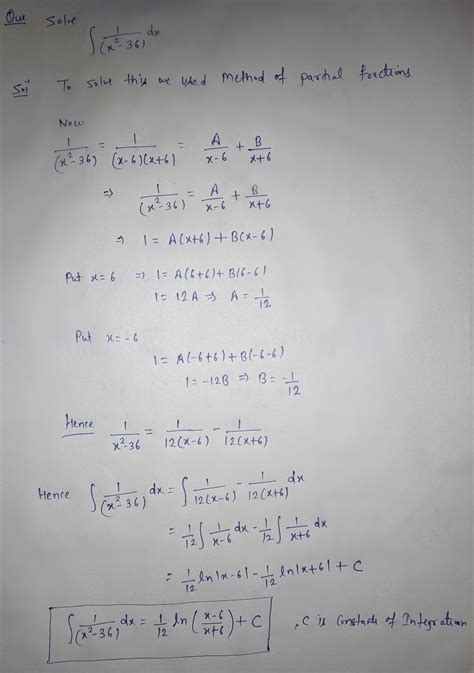 Que Solve
∫ 1/(x²-36) dx
Solⁿ To solve this we used Method of partial fractions
Now
1/(x²-36) = 1/((x-6)(x+6)) = A/(x-6) + B/(x+6)
⇒ 1/(x²-36) = A/(x-6) + B/(x+6)
⇒ 1 = A(x+6) + B(x-6)
Put x=6 ⇒ 1 = A(6+6) + B(6-6)
1 = 12A ⇒ A = 1/12
Put x=-6
1 = A(-6+6) + B(-6-6)
1 = -12B ⇒ B = -1/12
Hence 1/(x²-36) = 1/(12(x-6)) - 1/(12(x+6))
Hence ∫ 1/(x²-36) dx = ∫ 1/(12(x-6)) - 1/(12(x+6)) dx
= 1/12 ∫ 1/(x-6) dx - 1/12 ∫ 1/(x+6) dx
= 1/12 ln|x-6| - 1/12 ln|x+6| + C
∫ 1/(x²-36) dx = 1/12 ln((x-6)/(x+6)) + C , C is of Integration